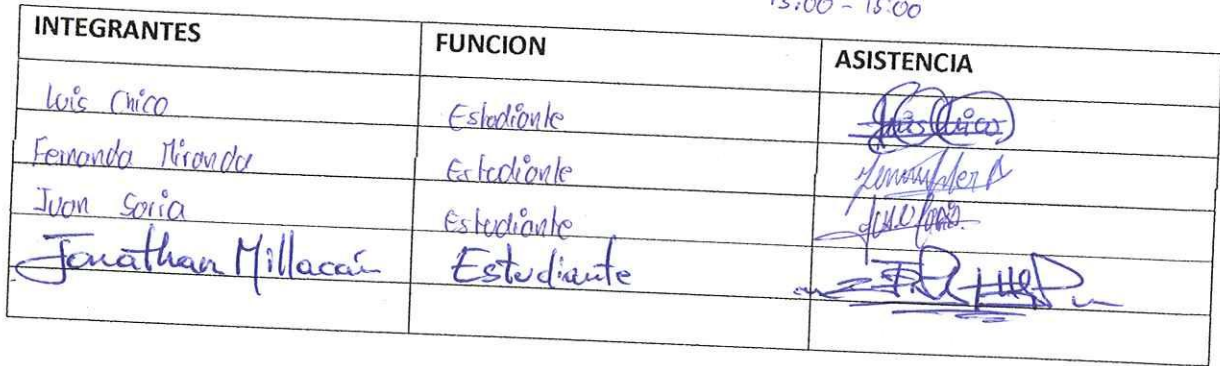 13:00 - 15:00
INTEGRANTES FUNCION ASISTENCIA
Luis Chico Estudiante Luis Chico
Fernanda Miranda Estudiante
Juan Soria Estudiante
Jonathan Millacán Estudiante